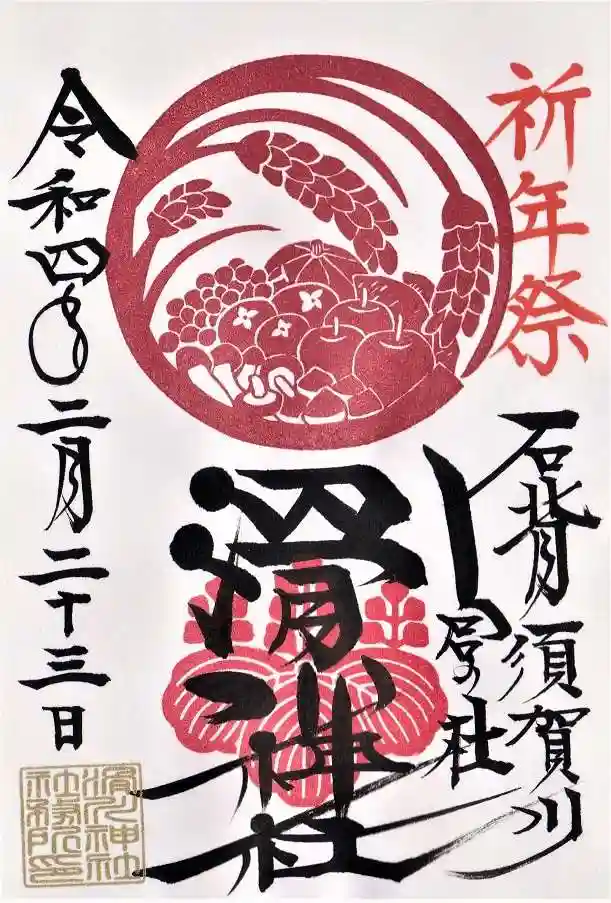 祈年祭
石背須賀川
の杜
滑川神社
令和四年二月二十三日
滑川神社
社務所印